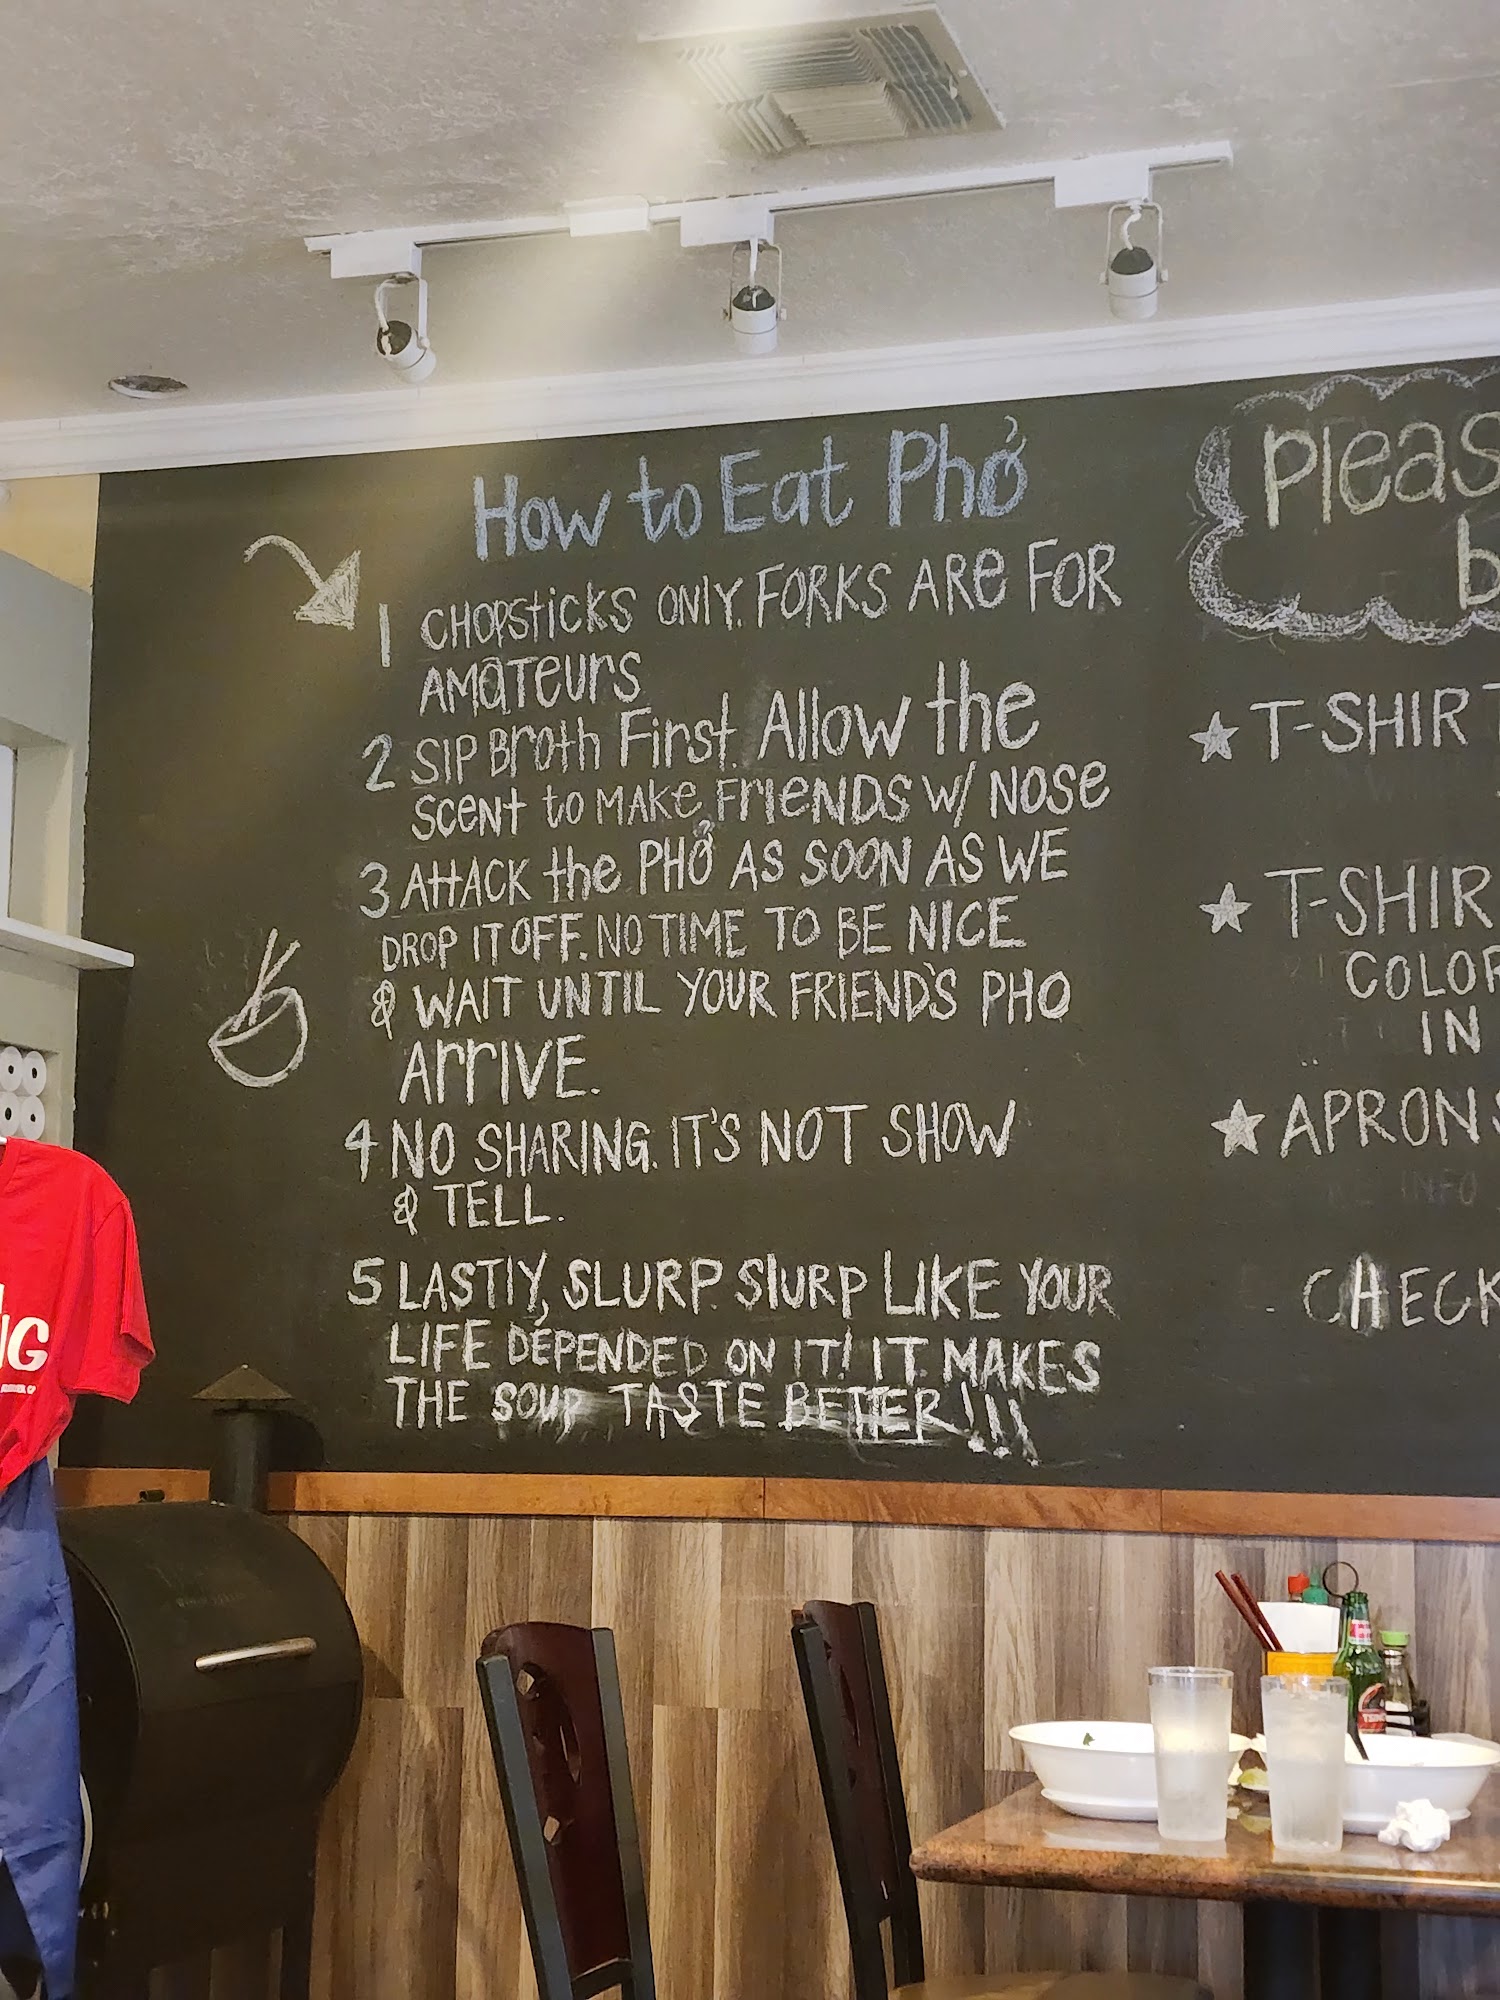 How to Eat Phở
1 CHOPSTICKS ONLY. FORKS ARE FOR
AMATEURS
2 SIP BROTH FIRST. Allow the
SCENT to MAKE FRIENDS W/ NOSE
3 ATTACK the PHỞ AS SOON AS WE
DROP IT OFF. NO TIME TO BE NICE
& WAIT UNTIL YOUR FRIEND'S PHO
ARRIVE.
4 NO SHARING. IT'S NOT SHOW
& TELL.
5 LASTLY, SLURP. SLURP LIKE YOUR
LIFE DEPENDED ON IT! IT MAKES
THE SOUP TASTE BETTER!!!
Pleas
b
T-SHIRT
T-SHIR
COLOR
IN
APRONS
CHECK
NG